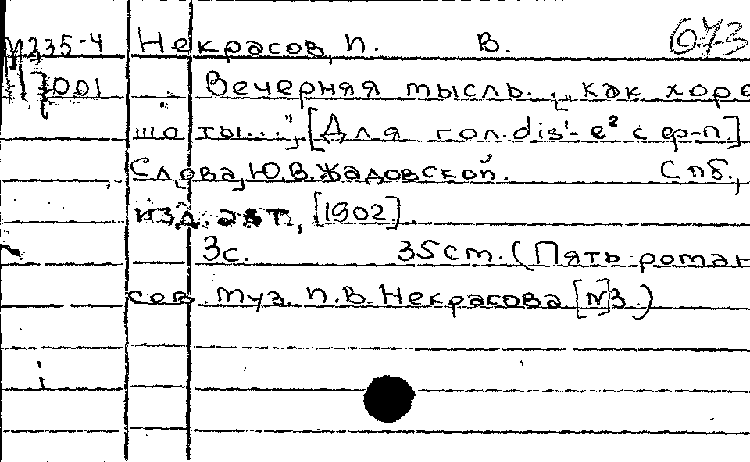 М235-4 Некрасов, П. В. 673
001 Вечерняя мысль. „как хоро
шо ты...", [Для гол. dis¹- e² с ф-п.]
Слова Ю.В.Жадовской. Спб.,
изд. авт., [1902].
3с. 35см. (Пять роман
сов. Муз. П.В.Некрасова [№]3.)